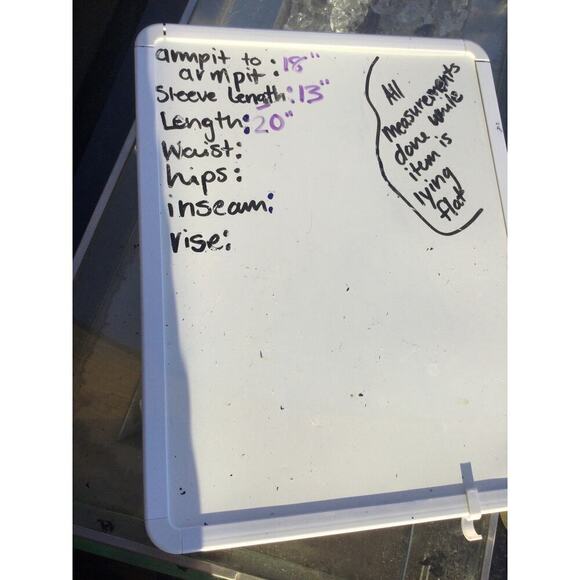 armpit to
armpit: 18"
Sleeve Length: 13"
Length: 20"
Waist:
hips:
inseam:
rise:
All
measurements
done while
item is
lying
flat